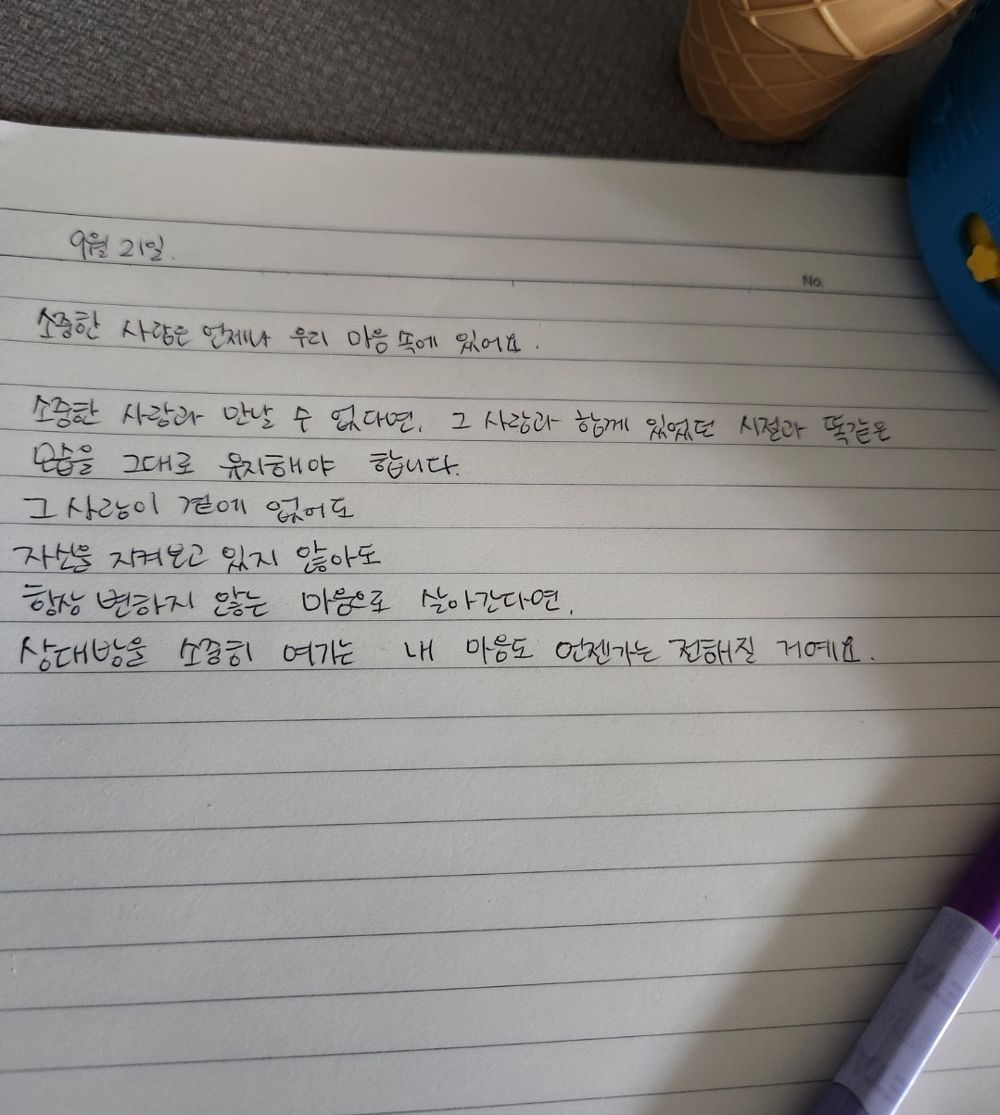 9월 21일.
No.
소중한 사람은 언제나 우리 마음 속에 있어요.
소중한 사람과 만날 수 없다면, 그 사람과 함께 있었던 시절과 똑같은
모습을 그대로 유지해야 합니다.
그 사람이 곁에 없어도
자신을 지켜보고 있지 않아도
항상 변하지 않는 마음으로 살아간다면,
상대방을 소중히 여기는 내 마음도 언젠가는 전해질 거예요.